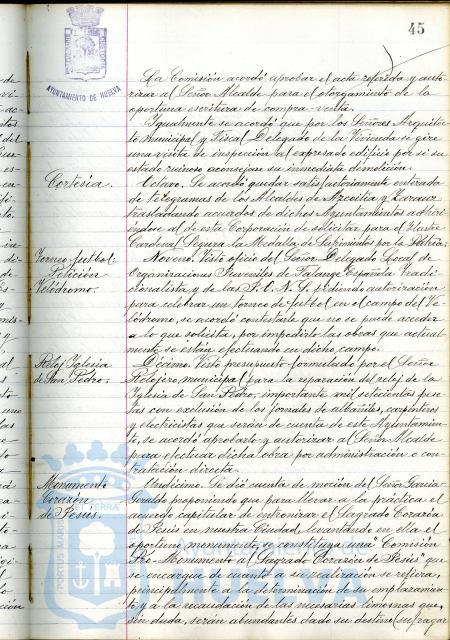 45
AYUNTAMIENTO DE HUELVA
La Comisión acordó aprobar el acta referida y auto-
rizar al Señor Alcalde para el otorgamiento de la
oportuna escritura de compra-venta.
Igualmente se acordó que por los Señores Arquitec-
to Municipal y Fiscal Delegado de la Vivienda se gire
una visita de inspección al expresado edificio por si su
estado ruinoso aconsejase su inmediata demolición.
Cortesía.
Octavo. Se acordó quedar satisfactoriamente enterada
de telegramas de los Alcaldes de Azcoitia y Zarauz
trasladando acuerdos de dichos Ayuntamientos adhiri-
éndose al de esta Corporación de solicitar para el Ilustre
Cardenal Segura la Medalla de Sufrimientos por la Patria.
Torneo futbol.
Petición
Velódromo.
Noveno. Visto oficio del Señor Delegado Local de
Organizaciones Juveniles de Falange Española Tradi-
cionalista y de las J.O.N.S. pidiendo autorización
para celebrar un torneo de futbol en el campo del Ve-
lódromo, se acordó contestarle que no se puede acceder
a lo que solicita, por impedirlo las obras que actual-
mente se están efectuando en dicho campo.
Reloj Iglesia
de San Pedro.
Décimo. Visto presupuesto formulado por el Señor
Relojero municipal para la reparación del reloj de la
Iglesia de San Pedro, importante mil setecientas pese-
tas con exclusión de los jornales de albañiles, carpinteros
y electricistas que serán de cuenta de este Ayuntamien-
to, se acordó aprobarlo y autorizar al Señor Alcalde
para efectuar dicha obra por administración o con-
tratación directa.
Monumento
Corazón
de Jesús.
Undécimo. Se dió cuenta de moción del Señor García
Geraldo proponiendo que para llevar a la práctica el
acuerdo capitular de entronizar el Sagrado Corazón
de Jesús en nuestra Ciudad, levantando en ella el
oportuno monumento, se constituya una "Comisión
Pro-Monumento al Sagrado Corazón de Jesús" que
se encargue de cuanto a su realización se refiera,
principalmente a la determinación de su emplazamien-
to y a la recaudación de las necesarias limosnas que,
sin duda, serán abundantes dado su destino, sufragar